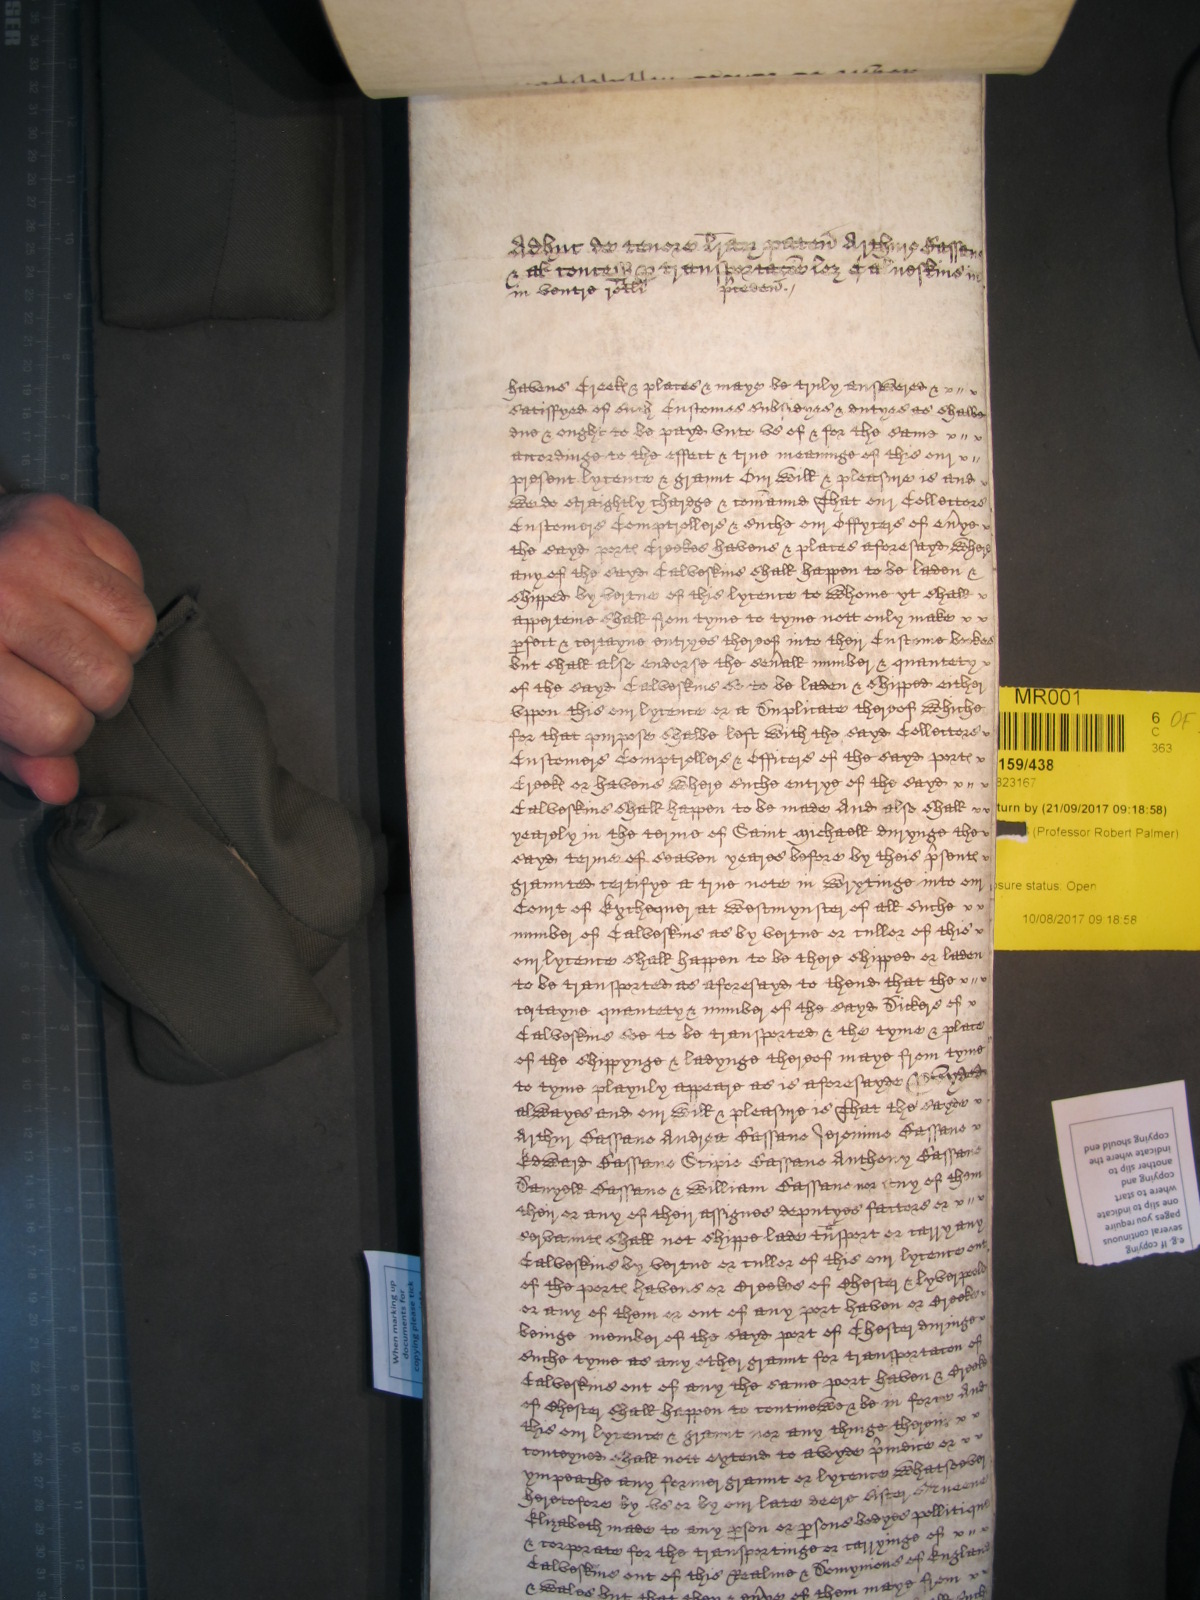 Adhuc de tenore lrar paten Arthuro Bassano
& al concess p transportacoe lez Calveskins
in ventis
havens Creeks & places & maye be truly answered &
satisfyed of such Customes Subsidyes & dutyes as shalbe
due & ought to be payd vnto vs of & for the same
accordinge to the effect & true meaninge of this our
present lycence & graunt Our will & pleasure is and
we do straightly chardge & comaund That our Collectors
Customers Comptrollers & suche our Offycers of
the sayd ports Creekes havens & places aforesayd where
any of the sayd Calveskins shall happen to be laden &
shipped by vertue of this lycence to whome yt shall
apperteine shall from tyme to tyme nott only make
pfect & certayne entryes thereof into their Custome bokes
but shall also endorse the senall number & quantety
of the sayd Calveskins so to be laden & shipped either
vppon this our lycence or a Duplicate thereof whiche
for that purpose shalbe left with the sayd Collectors
Customers Comptrollers & Officers of the sayd ports
Creek or havens where suche entrye of the sayd
Calveskins shall happen to be made And also shall
yearely in the terme of Saint Michaell duringe the
sayd terme of seaven yeares before by theis psents
graunted certifye a true note in wrytinge into our
Court of Exchequer at Westmynster of all suche
number of Calveskins as by vertue or culler of this
our lycence shall happen to be there shipped or laden
to be transported as aforesayd to thend that the
certayne quantety & number of the sayd Dickers of
Calveskins so to be transported & the tyme & place
of the shippynge & ladynge thereof maye from tyme
to tyme playnly appeare as is aforesayde Provyded
alwayes and our will & pleasure is That the sayde
Arthur Bassano Andrea Bassano Jeronimo Bassano
Edward Bassano Scipio Bassano Anthony Bassano
Danyell Bassano & William Bassano nor any of them
their or any of their assignes deputyes factors or
servaunts shall not shippe lade tnsport or carry any
Calveskins by vertue or culler of this our lycence out
of the ports havens or Creekes of Chester & Lyverpoole
or any of them or out of any port haven or Creeke
beinge member of the sayd port of Chester duringe
suche tyme as any other graunt for transportacon of
Calveskins out of any the same port haven & Creeke
of Chester shall happen to contineue & be in force And
this our lycence & graunt nor any thinge therein
conteyned shall nott extend to avoyde piudice or
ympeache any former graunt or lycence whatsoever
heretofore by vs or by our late deere sister Queene
Elizabeth made to any pson or psons bodyes pollitique
& corporate for the transportinge or carryinge of
Calveskins out of this Realme & Domynions of England
& wales but that they & of them maye from
MR001
6 OF
C
363
159/438
823167
turn by (21/09/2017 09:18:58)
(Professor Robert Palmer)
osure status: Open
10/08/2017 09:18:58
e.g. If copying
several continuous
pages you require
one slip to indicate
where to start
copying and
another slip to
indicate where the
copying should end
When marking up
documents for
copying please tick